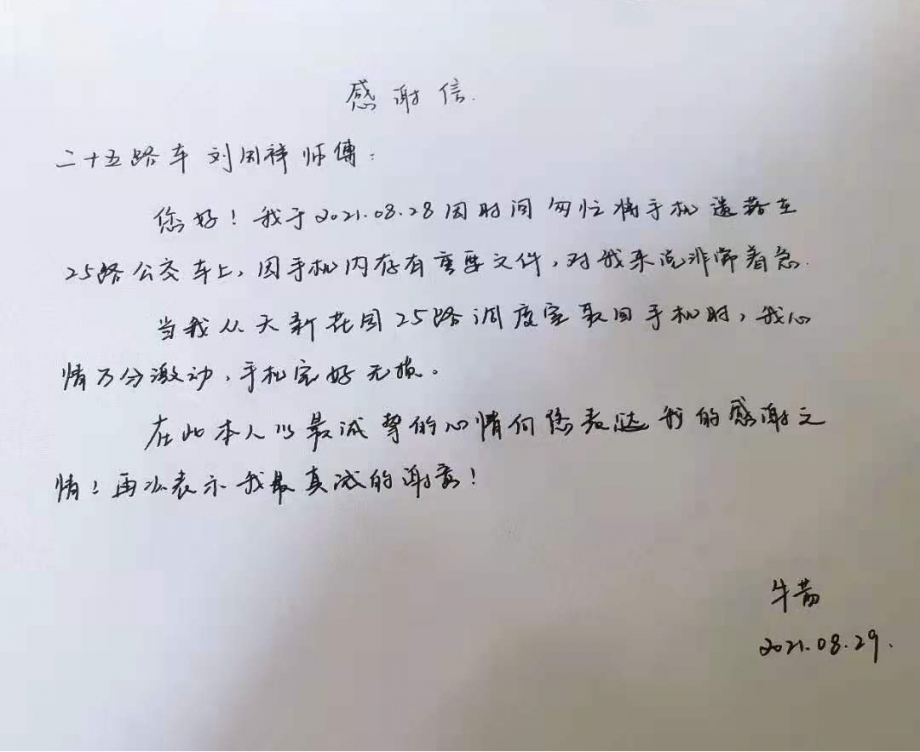 感谢信.
二十五路车 刘国祥师傅:
您好！我于2021.08.28因时间匆忙将手机遗落在
25路公交车上，因手机内存有重要文件，对我来说非常着急.
当我从天新花园25路调度室取回手机时，我心
情万分激动，手机完好无损。
在此本人以最诚挚的心情向您表达我的感谢之
情！再次表示我最真诚的谢意！
牛
2021.08.29.